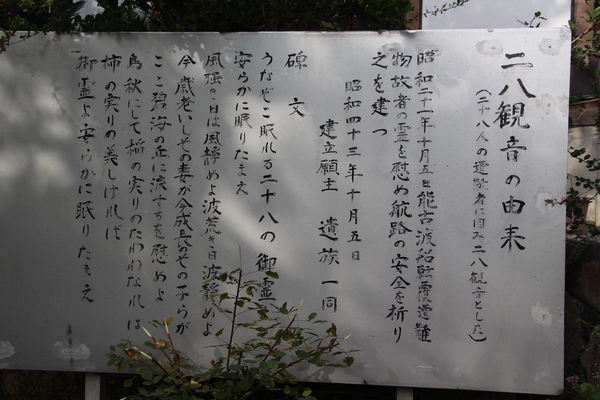 二八観音の由来
(二十八人の遭難者に因み二八観音とした)
昭和二十一年十月五日能古渡船転覆遭難
物故者の霊を慰め航路の安全を祈り
之を建つ
昭和四十三年十月五日
建立願主 遺族一同
碑文
うなぞこ眠れる二十八の御霊
安らかに眠りたまえ
風強き日は風静めよ波荒き日波静めよ
今歳老いしその妻が今成長のその子らが
こと碧海の
に涙するを慰めよ
島秋にして稲の実りのたわわなれば
柿の実りの美しければ
御霊よ安らかに眠りたまえ